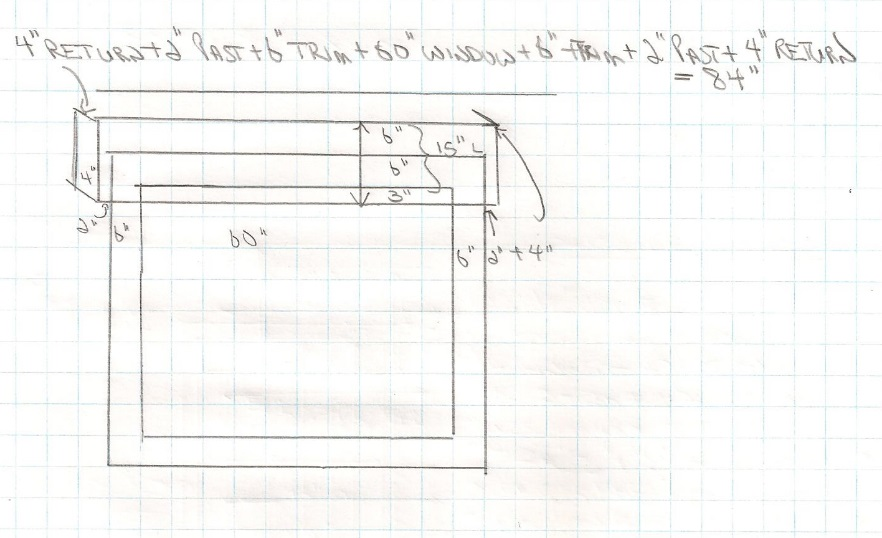 4" RETURN + 2" PAST + 6" TRIM + 60" WINDOW + 6" TRIM + 2" PAST + 4" RETURN
= 84"
6" 15" L
6"
4" 3"
2" 6" 60" 6" 2" + 4"